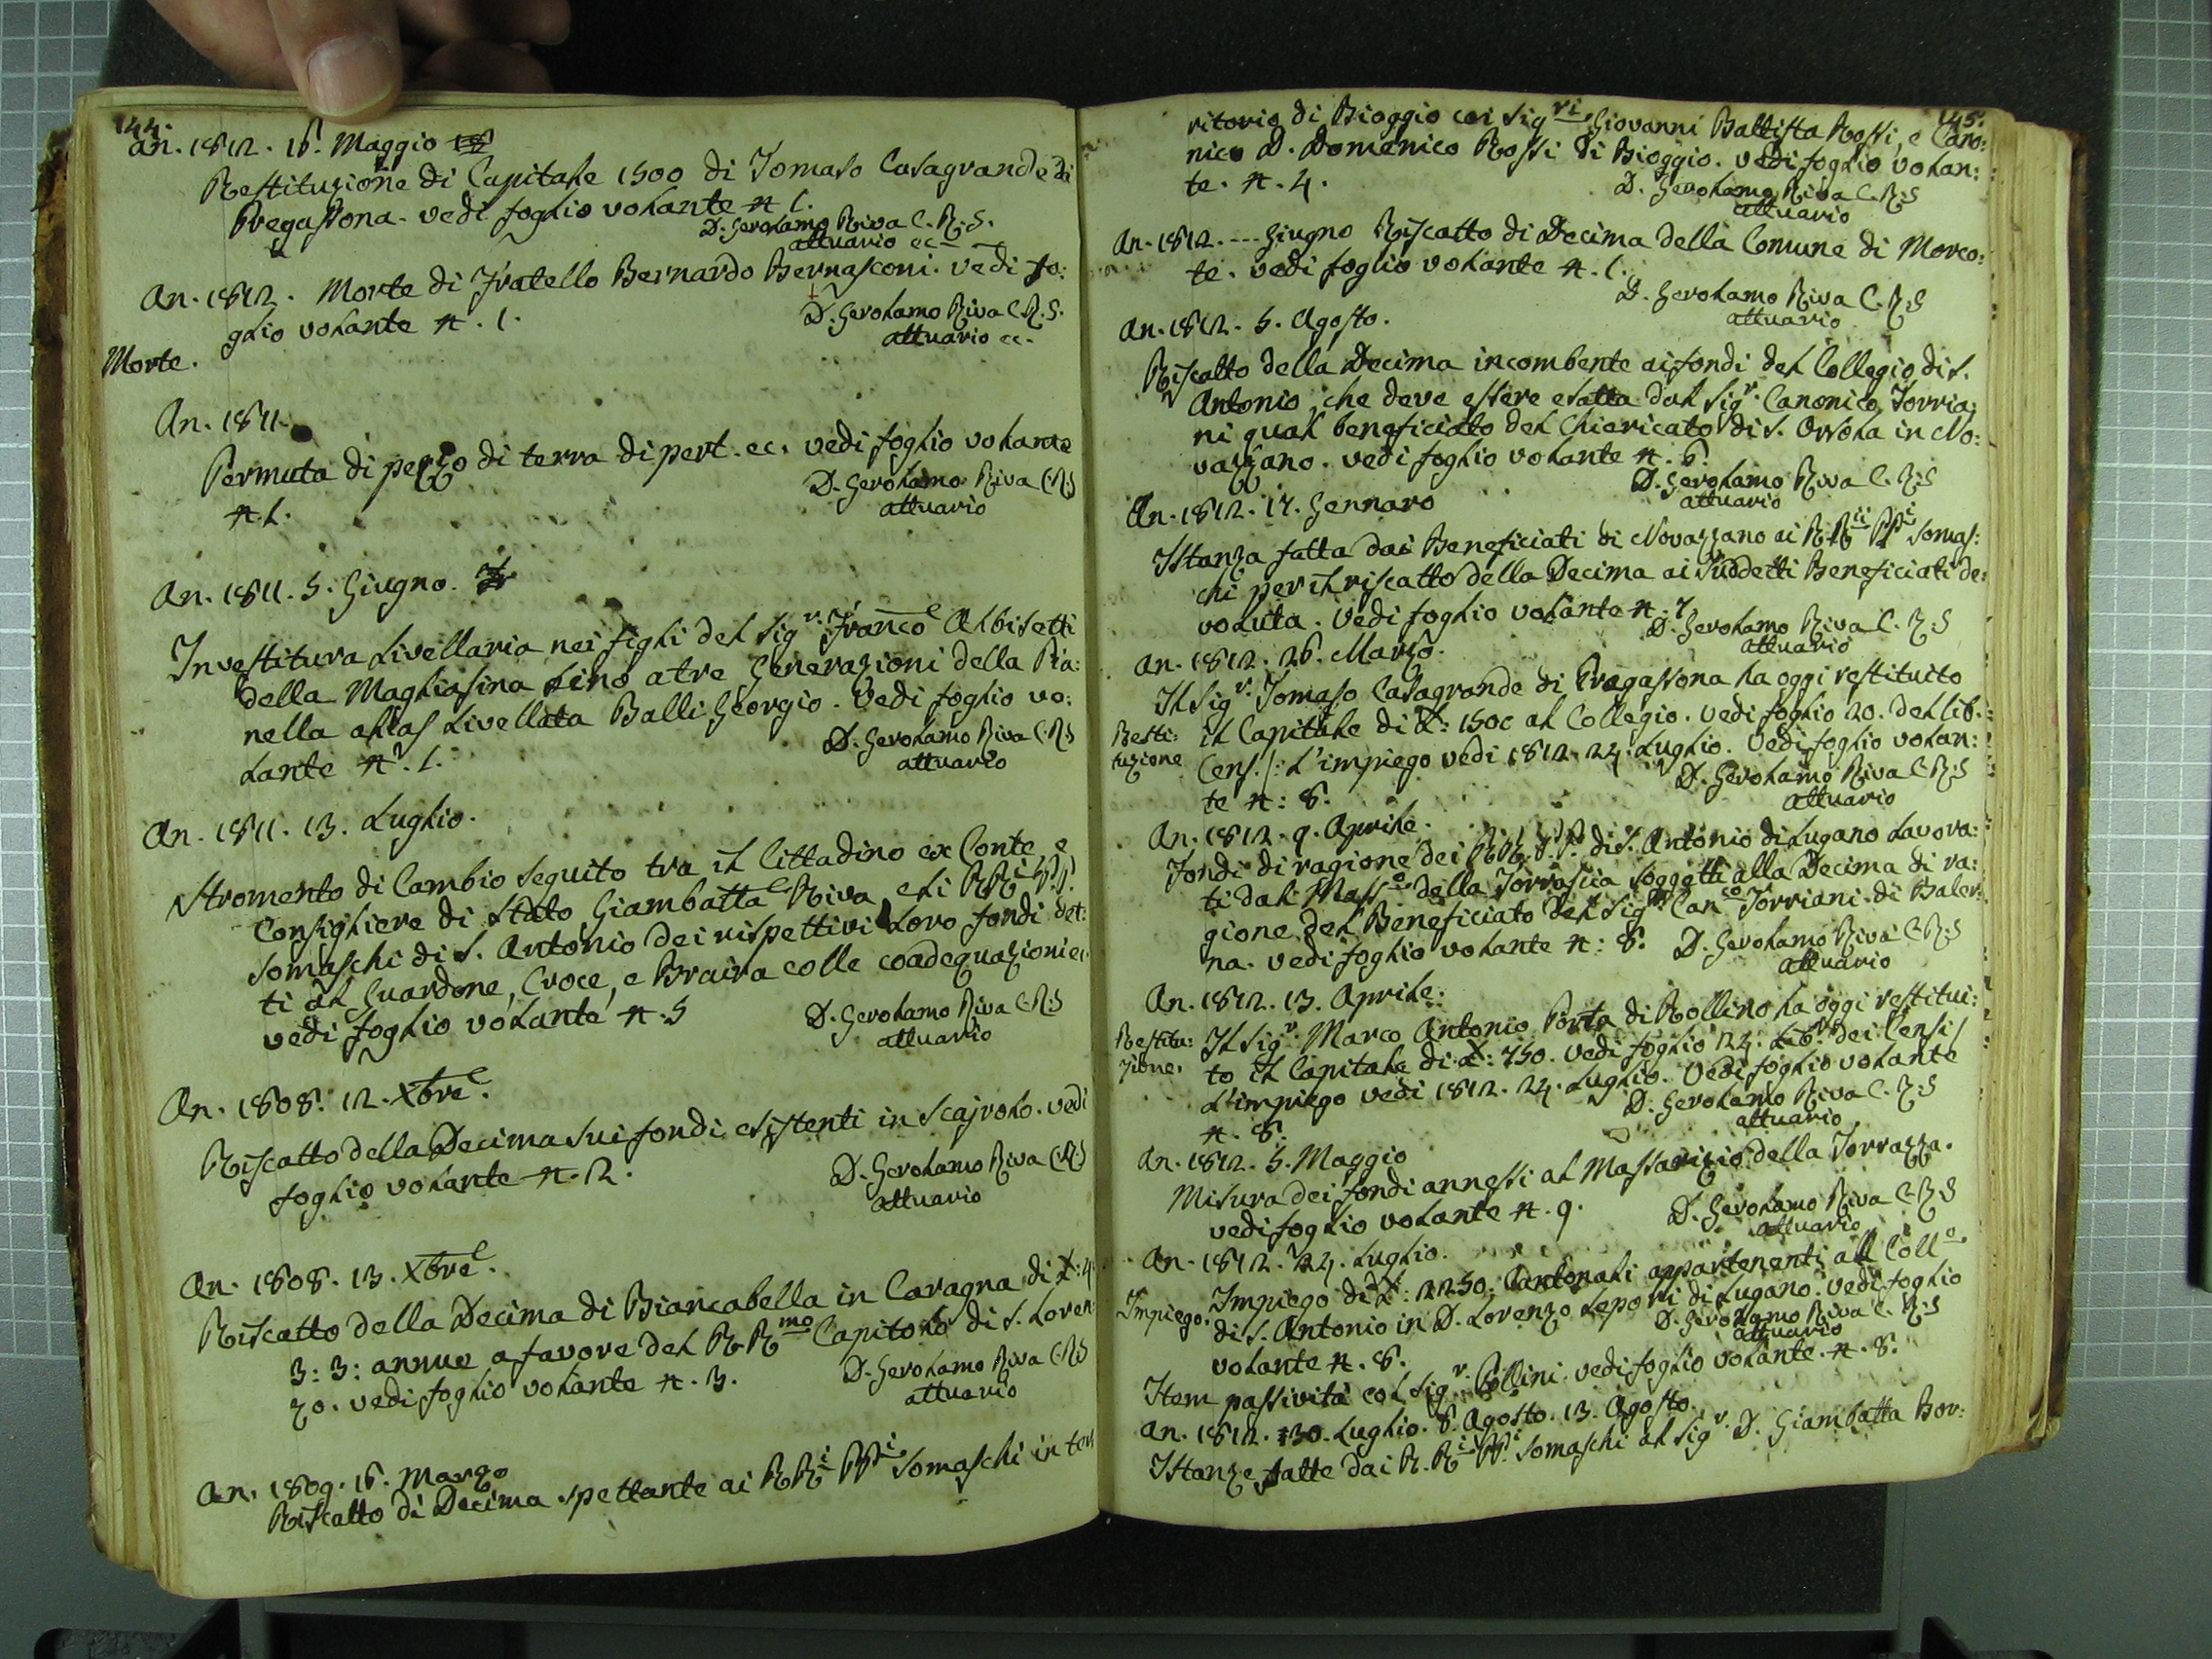 144.
An. 1812. 16. Maggio
Restituzione di Capitale 1500 di Tomaso Casagrande di
Pregassona. vedi foglio volante N 1.
D. Gerolamo Riva C. R. S.
attuario ec
An. 1812. Morte di Fratello Bernardo Bernasconi. vedi fo:
glio volante N. 1.
D. Gerolamo Riva C. R. S.
attuario ec.
Morte.
An. 1811.
Permuta di pezzo di terra di pert. ec. vedi foglio volante
N. 1.
D. Gerolamo Riva C.R.S
attuario
An. 1811. 5. Giugno.
Investitura Livellaria nei figli del Sig.r Franco Albisetti
della Magliasina Sino a tre Generazioni della Pia:
nella alias Livellata Balli Georgio. Vedi foglio vo:
lante N. 1.
D. Gerolamo Riva C.R.S
attuario
An. 1811. 13. Luglio.
Stromento di Cambio seguito tra il Cittadino ex Conte, e
Consigliere di Stato Giambatta Riva, e li RR.i P.P.
Somaschi di S. Antonio dei rispettivi Loro fondi det:
ti al Guardone, Croce, e Braira colle coadequazioni ec.
vedi foglio volante N. 5
D. Gerolamo Riva C.R.S
attuario
An. 1808. 12. Xbre.
Riscatto della Decima sui fondi esistenti in Scajrolo. vedi
foglio volante N. 2.
D. Gerolamo Riva C.R.S
attuario
An. 1808. 13. Xbre.
Riscatto della Decima di Biancabella in Caragna di L: 4
3: 3: annue a favore del RR.mo Capitolo di S. Loren:
zo. vedi foglio volante N. 3.
D. Gerolamo Riva C.R.S
attuario
An. 1809. 16. Marzo
Riscatto di Decima spettante ai RR.i PP.i Somaschi in ter
145.
ritorio di Bioggio coi Sig.ri Giovanni Battista Rossi, e Cano:
nico D. Domenico Rossi di Bioggio. vedi foglio volan:
te. N. 4.
D. Gerolamo Riva C.R.S
attuario
An. 1812. --- Giugno Riscatto di Decima della Comune di Morco:
te. vedi foglio volante N. 1.
D. Gerolamo Riva C.R.S
attuario
An. 1812. 5. Agosto.
Riscatto della Decima incombente ai fondi del Collegio di S.
Antonio, che deve essere esatta dal Sig.r Canonico Torria:
ni qual beneficiato del Chiericato di S. Orsola in No:
vazzano. vedi foglio volante N. 6.
D. Gerolamo Riva C.R.S
attuario
An. 1812. 17. Gennaro
Istanza fatta dai Beneficiati di Novazzano ai RR.ii PP.i Somas:
chi per il riscatto della Decima ai Suddetti Beneficiati de:
voluta. Vedi foglio volante N. 7
D. Gerolamo Riva C.R.S
attuario
An. 1812. 26. Marzo.
Il Sig.r Tomaso Casagrande di Pragassona ha oggi restituito
Resti:
tuzione
il Capitale di L: 1500 al Collegio. vedi foglio 20. del lib.
Cens. /: L'impiego vedi 1812. 24. Luglio. Vedi foglio volan:
te N: 8.
D. Gerolamo Riva C.R.S
attuario
An. 1812. 9. Aprile.
Fondi di ragione dei RR. P.P. di S. Antonio di Lugano Lavora:
ti dal Mass.o della Torraccia soggetti alla Decima di ra:
gione del Beneficiato del Sig.r Can.co Torriani di Baler:
na. vedi foglio volante N: 8.
D. Gerolamo Riva C.R.S
attuario
An. 1812. 13. Aprile.
Restitu:
zione.
Il Sig.r Marco Antonio Porta di Rollino ha oggi restitui:
to il Capitale di L: 750. vedi foglio 24. Lib.o dei Censi /
L'impiego vedi 1812. 24. Luglio. Vedi foglio volante
N. 8.
D. Gerolamo Riva C.R.S
attuario
An. 1812. 5. Maggio
Misura dei fondi annessi al Massarizio della Torrazza.
vedi foglio volante N. 9.
D. Gerolamo Riva C.R.S
attuario
An. 1812. 24. Luglio.
Impiego.
Impiego di L: 2250: Cantonali appartenenti al Coll.o
di S. Antonio in D. Lorenzo Lepori di Lugano. vedi foglio
volante N. 8.
D. Gerolamo Riva C.R.S
attuario
Item passività col Sig.r Pollini. vedi foglio volante. N. 8.
An. 1812. 30. Luglio. 8. Agosto. 13. Agosto.
Istanze fatte dai R. R.i PP.i Somaschi al Sig.r D. Giambatta Bor: